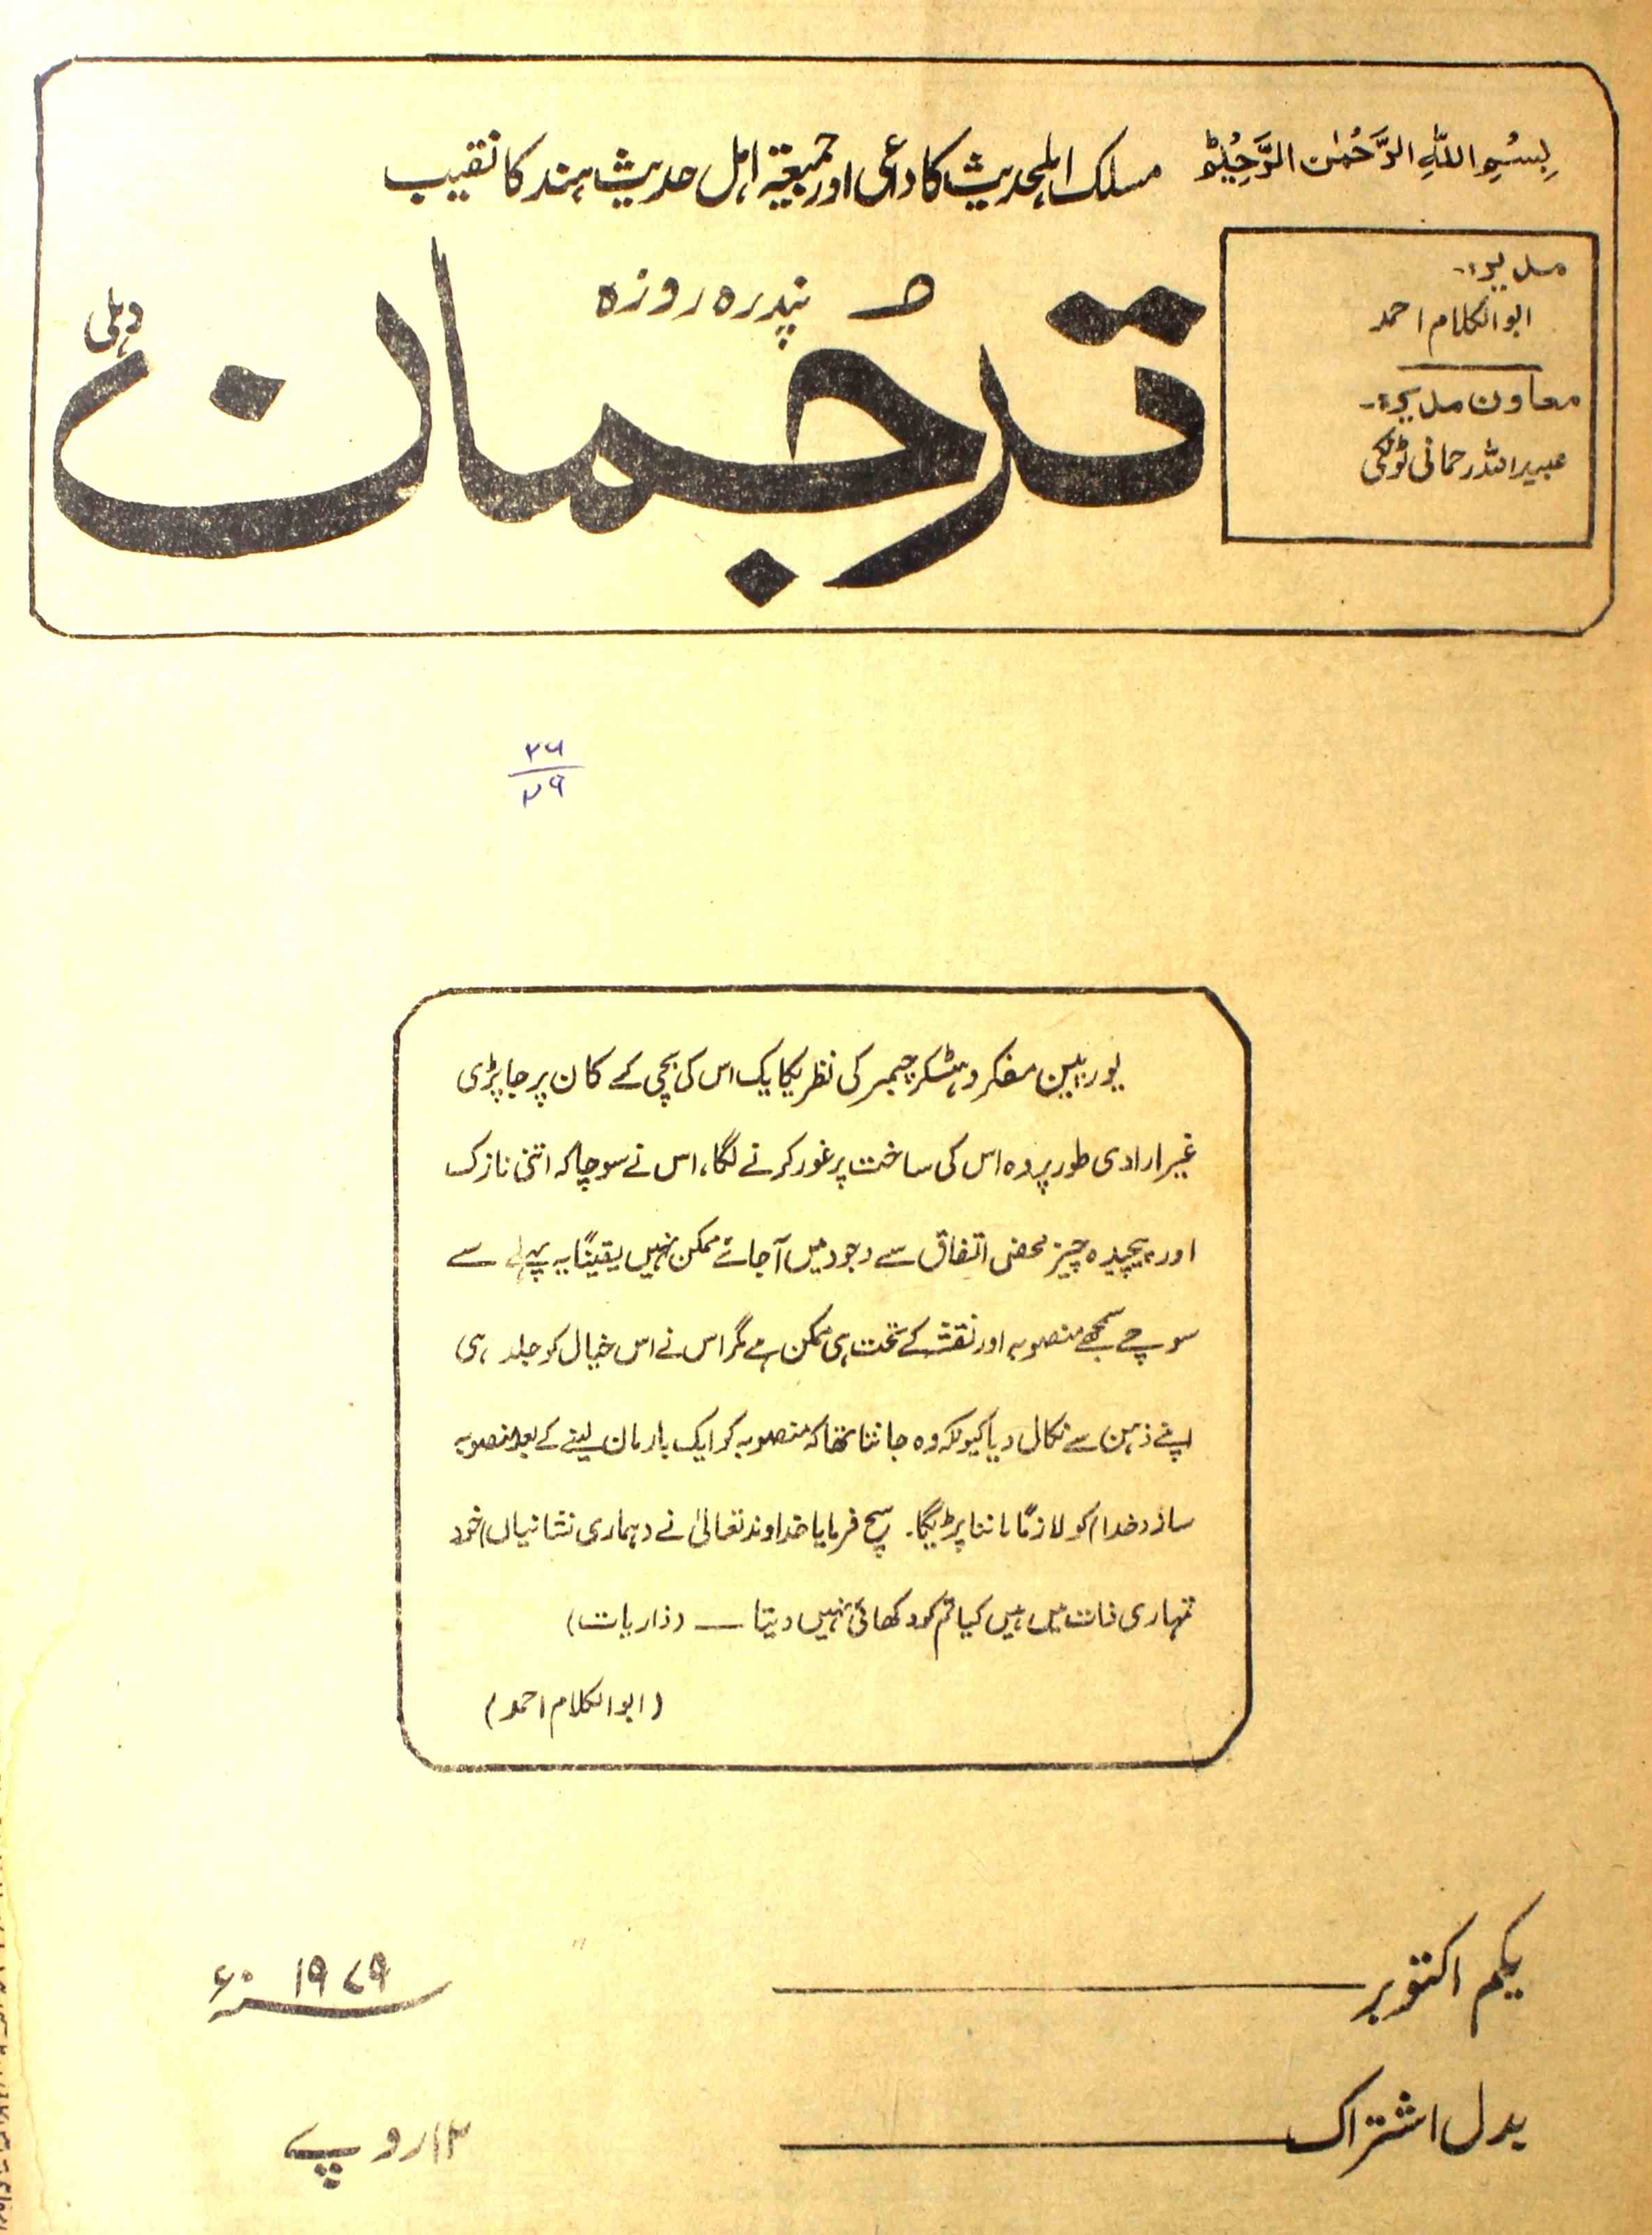 بِسْمِ اللهِ الرَّحْمٰنِ الرَّحِيْمِ
مسلک اہلحدیث کا داعی اور جمیعۃ اہل حدیث ہند کا نقیب
مدیر:۔
ابوالکلام احمد
معاون مدیر:۔
عبیداللہ رحمانی ٹونکی
پندرہ روزہ
ترجمان
دہلی
۲۶
۲۹
یورپین مفکر وہٹکر چیمبر کی نظر یکایک اس کی بچی کے کان پر جا پڑی
غیر ارادی طور پر وہ اس کی ساخت پر غور کرنے لگا، اس نے سوچا کہ اتنی نازک
اور پیچیدہ چیز محض اتفاق سے وجود میں آجائے ممکن نہیں یقیناً یہ پہلے سے
سوچے سمجھے منصوبہ اور نقشے کے تحت ہی ممکن ہے مگر اس نے اس خیال کو جلد ہی
اپنے ذہن سے نکال دیا کیونکہ وہ جانتا تھا کہ منصوبہ کو ایک بار مان لینے کے بعد منصوبہ
ساز (خدا) کو لازماً ماننا پڑیگا۔ سچ فرمایا خداوند تعالیٰ نے (ہماری نشانیاں) خود
تمہاری ذات میں ہیں کیا تم کو دکھائی نہیں دیتا — (ذاریات)
(ابوالکلام احمد)
یکم اکتوبر ۱۹۷۹ء
بدل اشتراک ۱۲/روپے